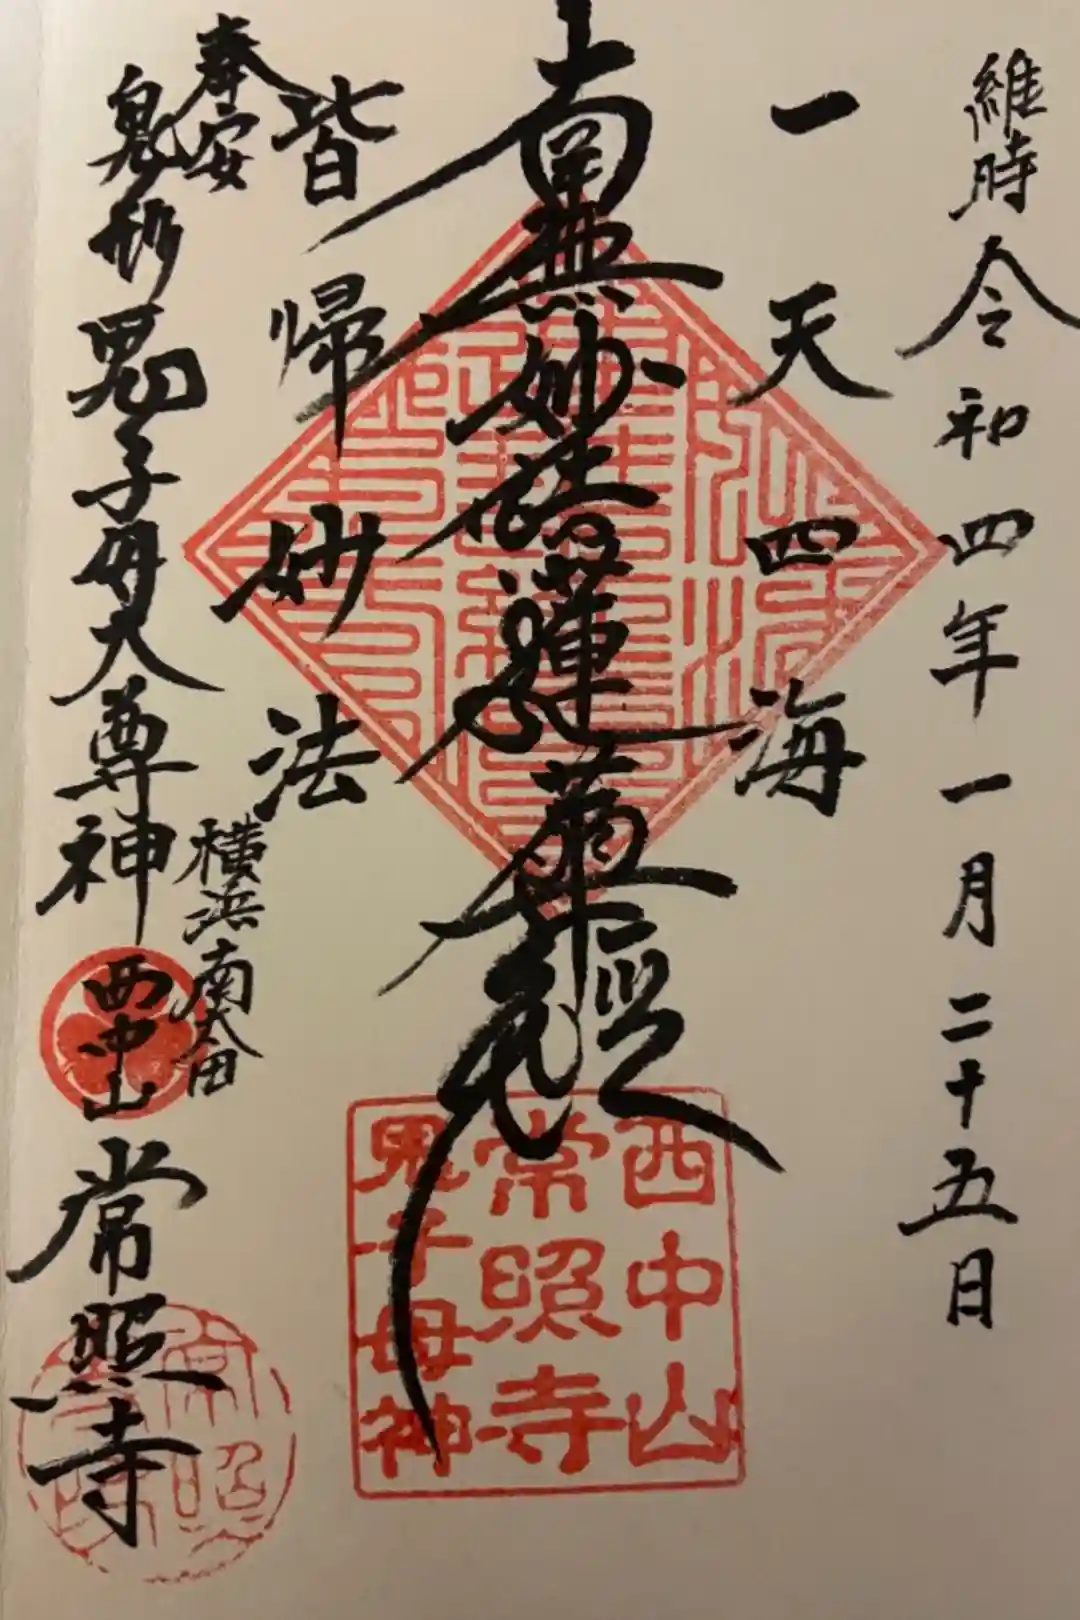 維時令和四年一月二十五日
一天四海
南無妙法蓮華経
皆帰妙法
奉安
鬼形鬼子母大尊神
横浜南太田
西中山常照寺
西中山
常照寺
鬼子母神